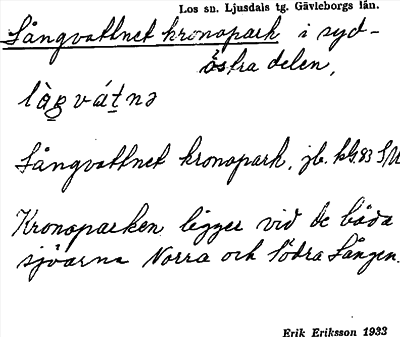 Los sn. Ljusdals tg. Gävleborgs län.
Långvattnet kronopark i syd-
östra delen,
Långvattnet kronopark, jb.
Kronoparken ligger vid de båda
sjöarna Norra och Södra Lången.
Erik Eriksson 1933